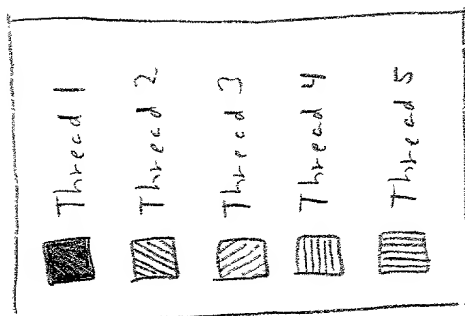 Thread 1
Thread 2
Thread 3
Thread 4
Thread 5